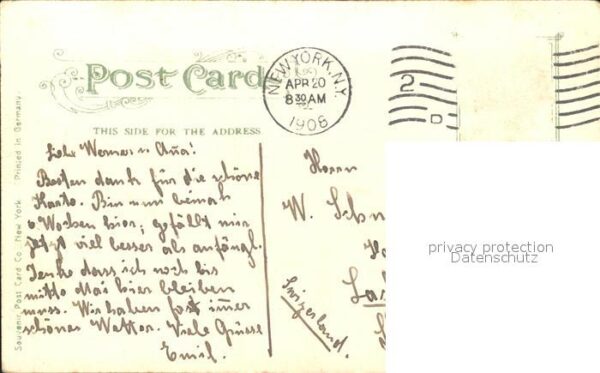 POST CARD
THIS SIDE FOR THE ADDRESS
NEW YORK, N.Y.
APR 20
8 30 AM
1906
2
D
Souvenir Post Card Co. New York
Printed in Germany.
Liebe Werner u.
Besten dank für die schöne
Karte. Bin nun beinah
6 Wochen hier, gefällt mir
jetzt viel besser als anfangl.
Denke dass ich noch bis
mitte Mai hier bleiben
muss. Wir haben fast immer
schönes Wetter. Viele Grüsse
Emil.
Herrn
W. Schn
Switzerland.
privacy protection
Datenschutz